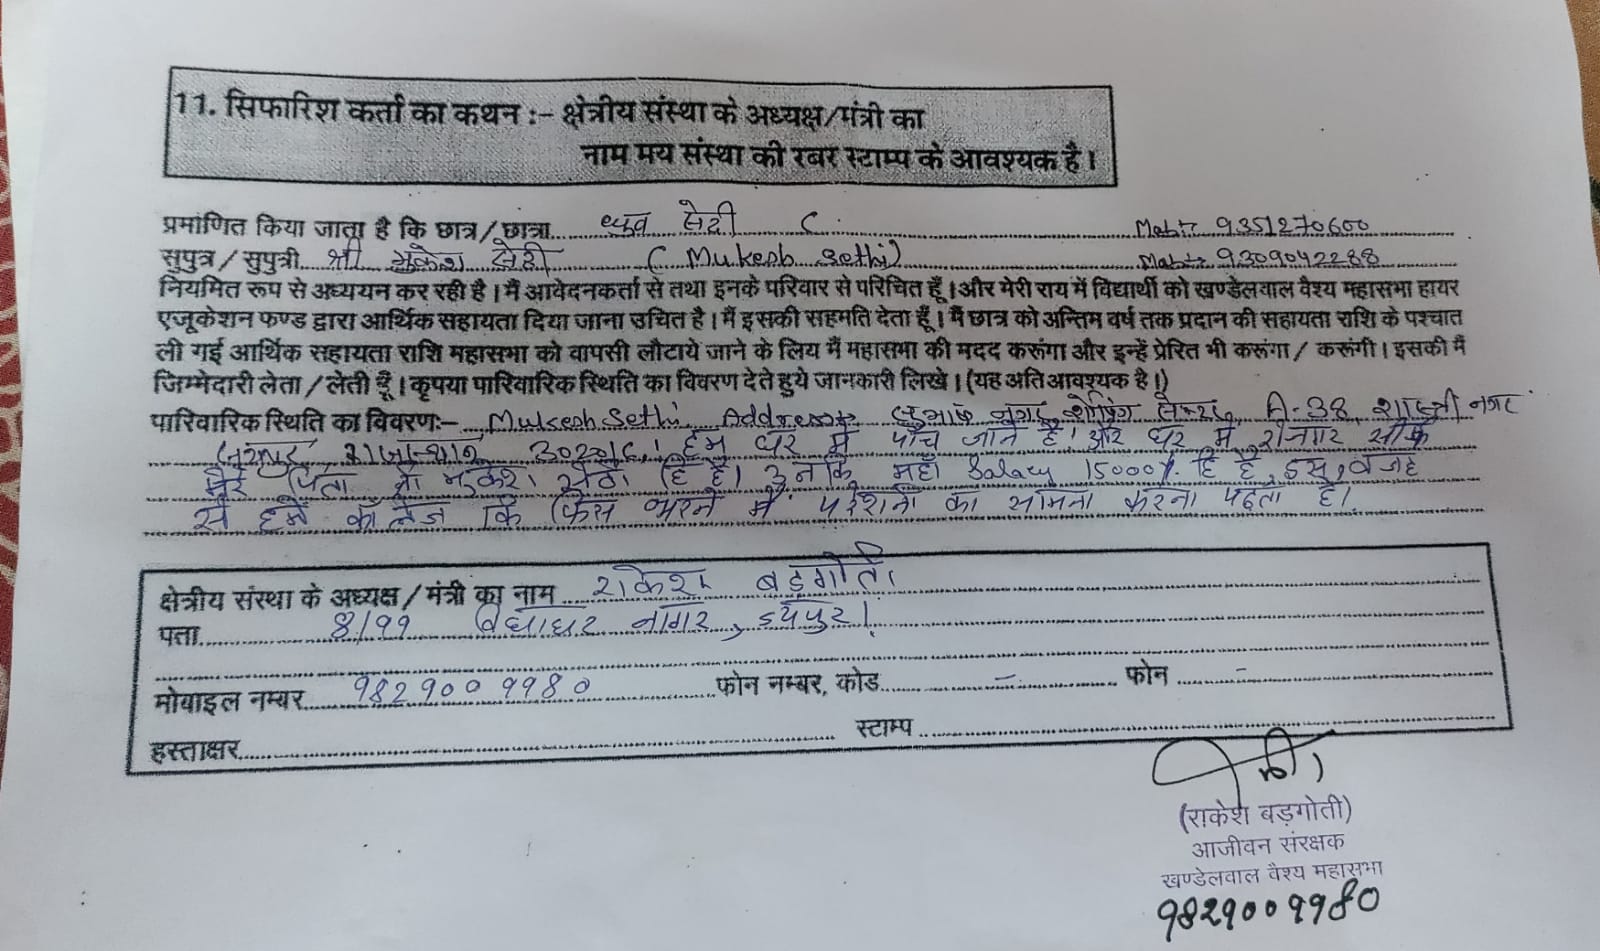 11. सिफारिश कर्ता का कथन :- क्षेत्रीय संस्था के अध्यक्ष/मंत्री का
नाम मय संस्था की रबर स्टाम्प के आवश्यक है।
प्रमाणित किया जाता है कि छात्र/छात्रा सेठी ( Mob:- 9351270600
सुपुत्र/सुपुत्री श्री मुकेश सेठी ( Mukesh Sethi) Mob:- 9309042288
नियमित रूप से अध्ययन कर रही है। मैं आवेदनकर्ता से तथा इनके परिवार से परिचित हूँ। और मेरी राय में विद्यार्थी को खण्डेलवाल वैश्य महासभा हायर
एजूकेशन फण्ड द्वारा आर्थिक सहायता दिया जाना उचित है। मैं इसकी सहमति देता हूँ। मैं छात्र को अन्तिम वर्ष तक प्रदान की सहायता राशि के पश्चात
ली गई आर्थिक सहायता राशि महासभा को वापसी लौटाये जाने के लिय मैं महासभा की मदद करूंगा और इन्हें प्रेरित भी करूंगा/ करूंगी। इसकी मैं
जिम्मेदारी लेता/लेती हूँ। कृपया पारिवारिक स्थिति का विवरण देते हुये जानकारी लिखे। (यह अति आवश्यक है।)
पारिवारिक स्थिति का विवरण:- Mukesh Sethi Address:- सुभाष नगर शॉपिंग सेन्टर, A-38 शास्त्री नगर
जयपुर राजस्थान 302016। हम घर में पाँच जाने है। और घर में रोजगार सिर्फ
मेरे पिता श्री मुकेश सेठी हि है। उनकि Salary 15000/- हि है, इस वजह
से हमें कॉलेज कि फिस भरने में परेशानी का सामना करना पड़ता है।
क्षेत्रीय संस्था के अध्यक्ष/मंत्री का नाम राकेश बड़गोती
पता 8/99 विद्याधर नागर, जयपुर।
मोबाइल नम्बर 9829009980 फोन नम्बर, कोड - फोन -
हस्ताक्षर स्टाम्प
(राकेश बड़गोती)
आजीवन संरक्षक
खण्डेलवाल वैश्य महासभा
9829009980